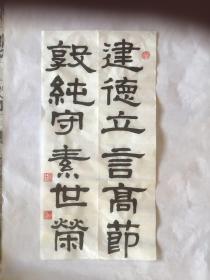 建德立言高節
敦純守素世榮